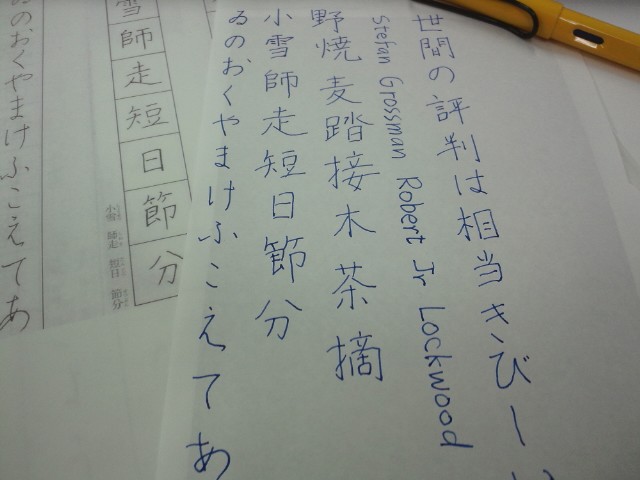 世間の評判は相当きびー
Stefan Grossman Robert Jr Lockwood
野焼麦踏接木茶摘
小雪師走短日節分
ゐのおくやまけふこえてあ
雪師走短日節分
小雪 師走 短日 節分
のおくやまけふこえてあ